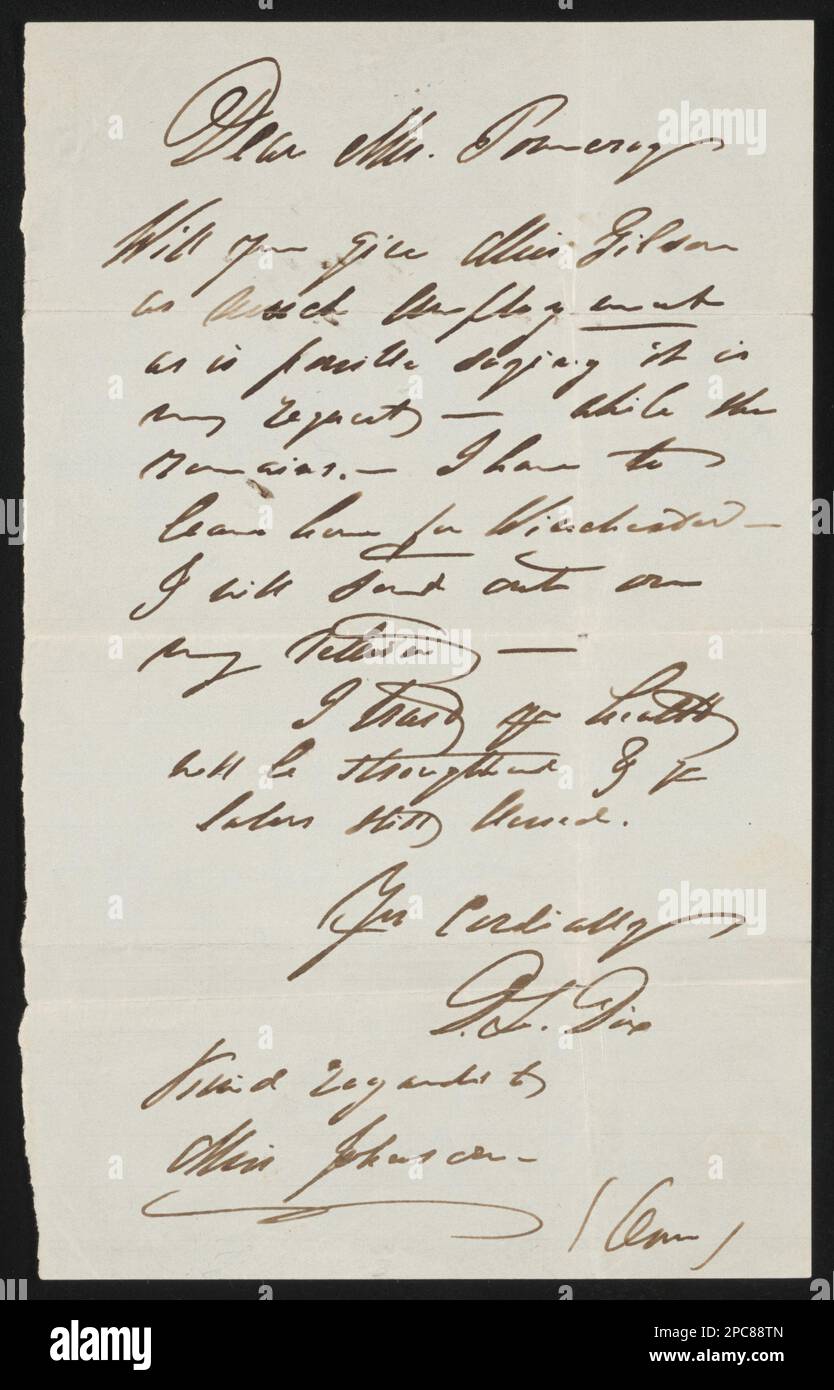 Dear Mrs. Pomeroy
Will you give Miss Gilson
as much employment
as is possible saying it is
my request — while she
remains. — I have to
leave home for Winchester —
I will send out on
my return —
I trust yr health
will be strengthened & yr
labors still blessed.
Yrs Cordially
D. L. Dix
Kind regards to
Miss Johnson —
alamy
alamy
alamy
Image ID: 2PC88TN
www.alamy.com